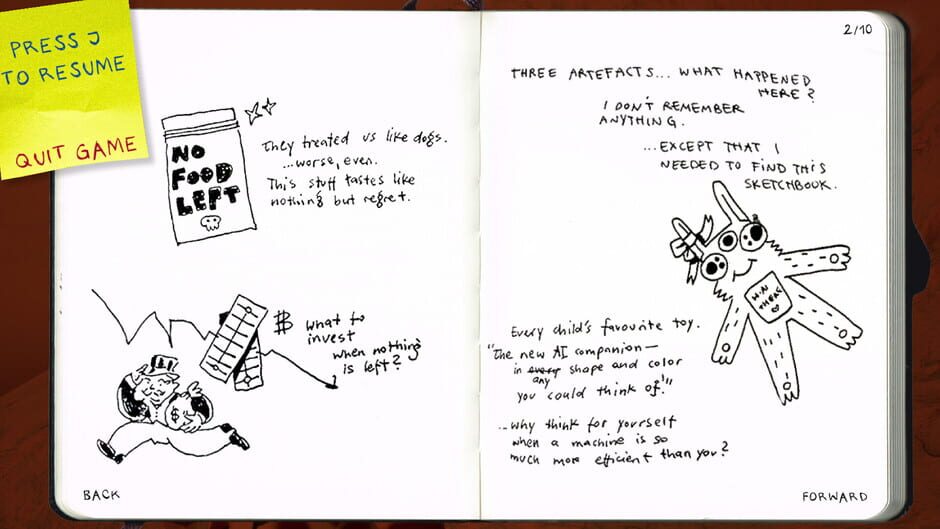 PRESS J
TO RESUME
QUIT GAME
NO
FOOD
LEFT
They treated us like dogs.
...worse, even.
This stuff tastes like
nothing but regret.
$
฿ What to
invest
when nothing
is left?
BACK
2/10
THREE ARTEFACTS... WHAT HAPPENED
HERE?
I DON'T REMEMBER
ANYTHING.
...EXCEPT THAT I
NEEDED TO FIND THIS
SKETCHBOOK.
Every child's favourite toy.
"The new AI companion—
in every shape and color
any
you could think of!"
...why think for yourself
when a machine is so
much more efficient than you?
FORWARD